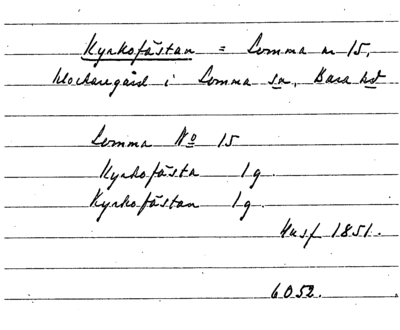 Kyrkofästan = Lomma nr 15,
klockaregård i Lomma sn, Bara hd
Lomma No 15
Kyrkofästa 1 g.
Kyrkofästan 1 g.
Husf 1851.
6052.